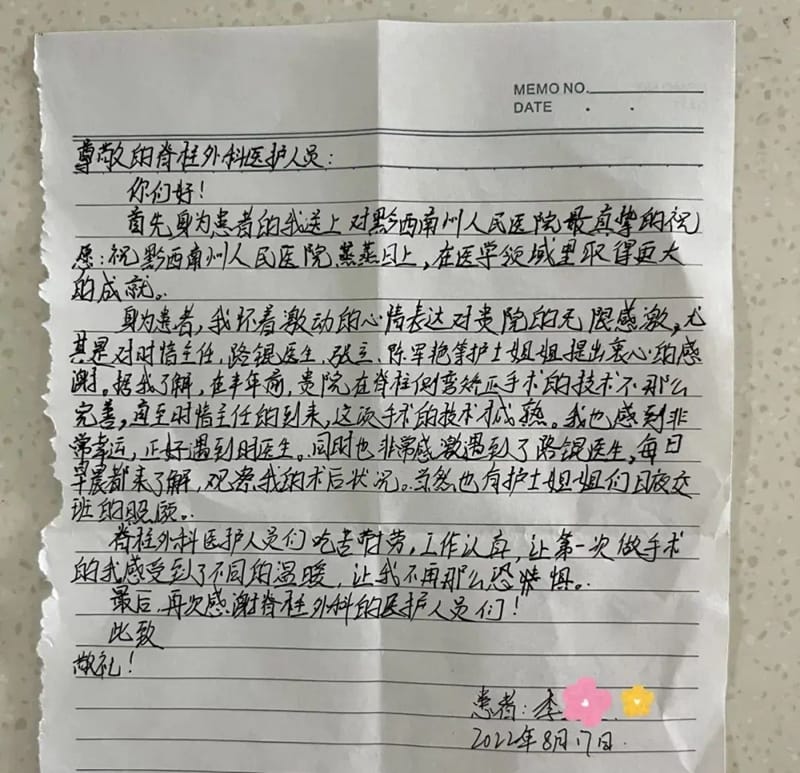 MEMO NO.
DATE . .
尊敬的脊柱外科医护人员:
你们好!
首先身为患者的我送上对黔西南州人民医院最真挚的祝
愿:祝黔西南州人民医院蒸蒸日上,在医学领域里取得更大
的成就。
身为患者,我怀着激动的心情表达对贵院的无限感激,尤
其是对时悟主任,路银医生,张立、陈军艳等护士姐姐提出衷心的感
谢。据我了解,在半年前,贵院在脊柱侧弯矫正手术的技术不那么
完善,直至时悟主任的到来,这项手术的技术才成熟。我也感到非
常幸运,正好遇到时医生。同时也非常感激遇到了路银医生,每日
早晨都来了解,观察我的术后状况。当然也有护士姐姐们日夜交
班的照顾。
脊柱外科医护人员们吃苦耐劳,工作认真,让第一次做手术
的我感受到了不同的温暖,让我不再那么恐惧。
最后,再次感谢脊柱外科的医护人员们!
此致
敬礼!
患者:李
2022年8月17日.